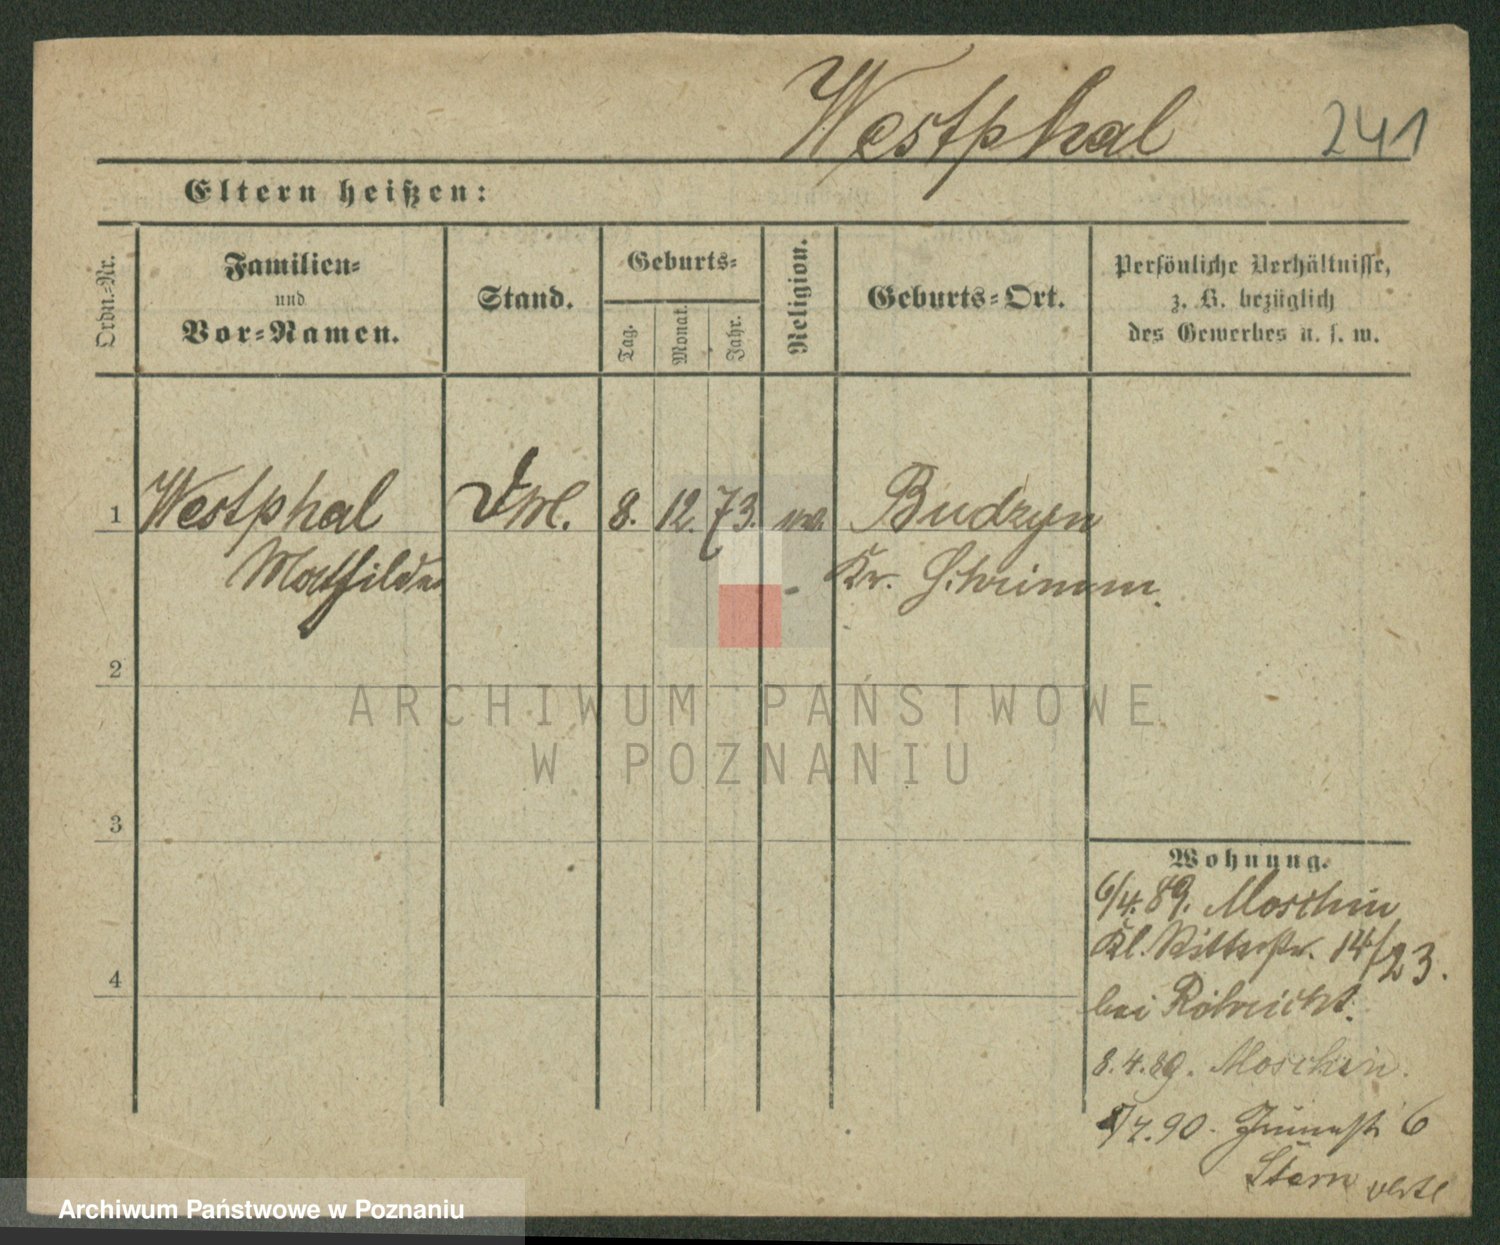 Westphal 241
Eltern heißen:
Ordn.-Nr.
Familien-
und
Vor-Namen.
Stand.
Geburts-
Tag.
Monat.
Jahr.
Religion.
Geburts-Ort.
Persönliche Verhältnisse,
z. B. bezüglich
des Gewerbes u. s. w.
1 Westphal 8. 12. 73. Budzyn
Mathilde Kr. Schrimm.
2
3
4
Wohnung.
6/4. 89. Moschin
Kl. Ritterstr. 14/23.
bei
8.4.89. Moschin.
90. 6
Stern
ARCHIWUM PAŃSTWOWE
W POZNANIU
Archiwum Państwowe w Poznaniu